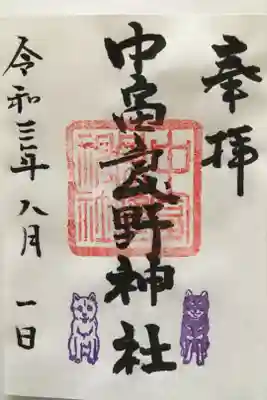 奉拝
中 野神社
令和三年八月一日